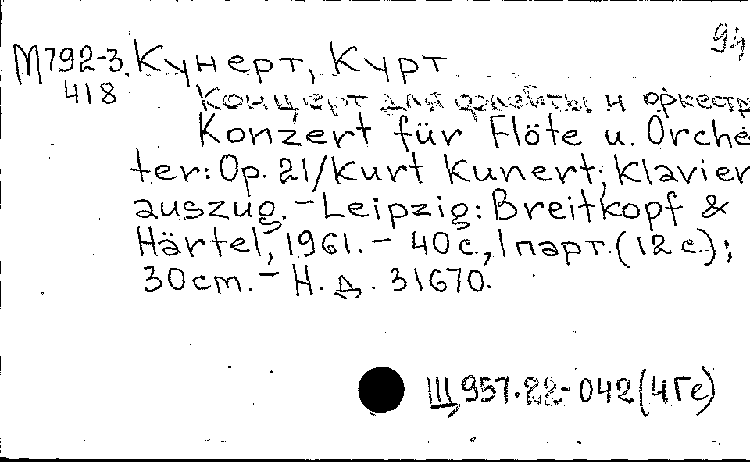 94
М792-3 Кунерт, Курт
418
Концерт для флейты и оркестр
Konzert für Flöte u. Orche
ter: Op. 21/Kurt Kunert; Klavier
auszug. - Leipzig: Breitkopf &
Härtel, 1961. - 40 с., 1 парт. (12 с.);
30cm. - Н. д. 31670.
Щ957.22-042(4Ге)